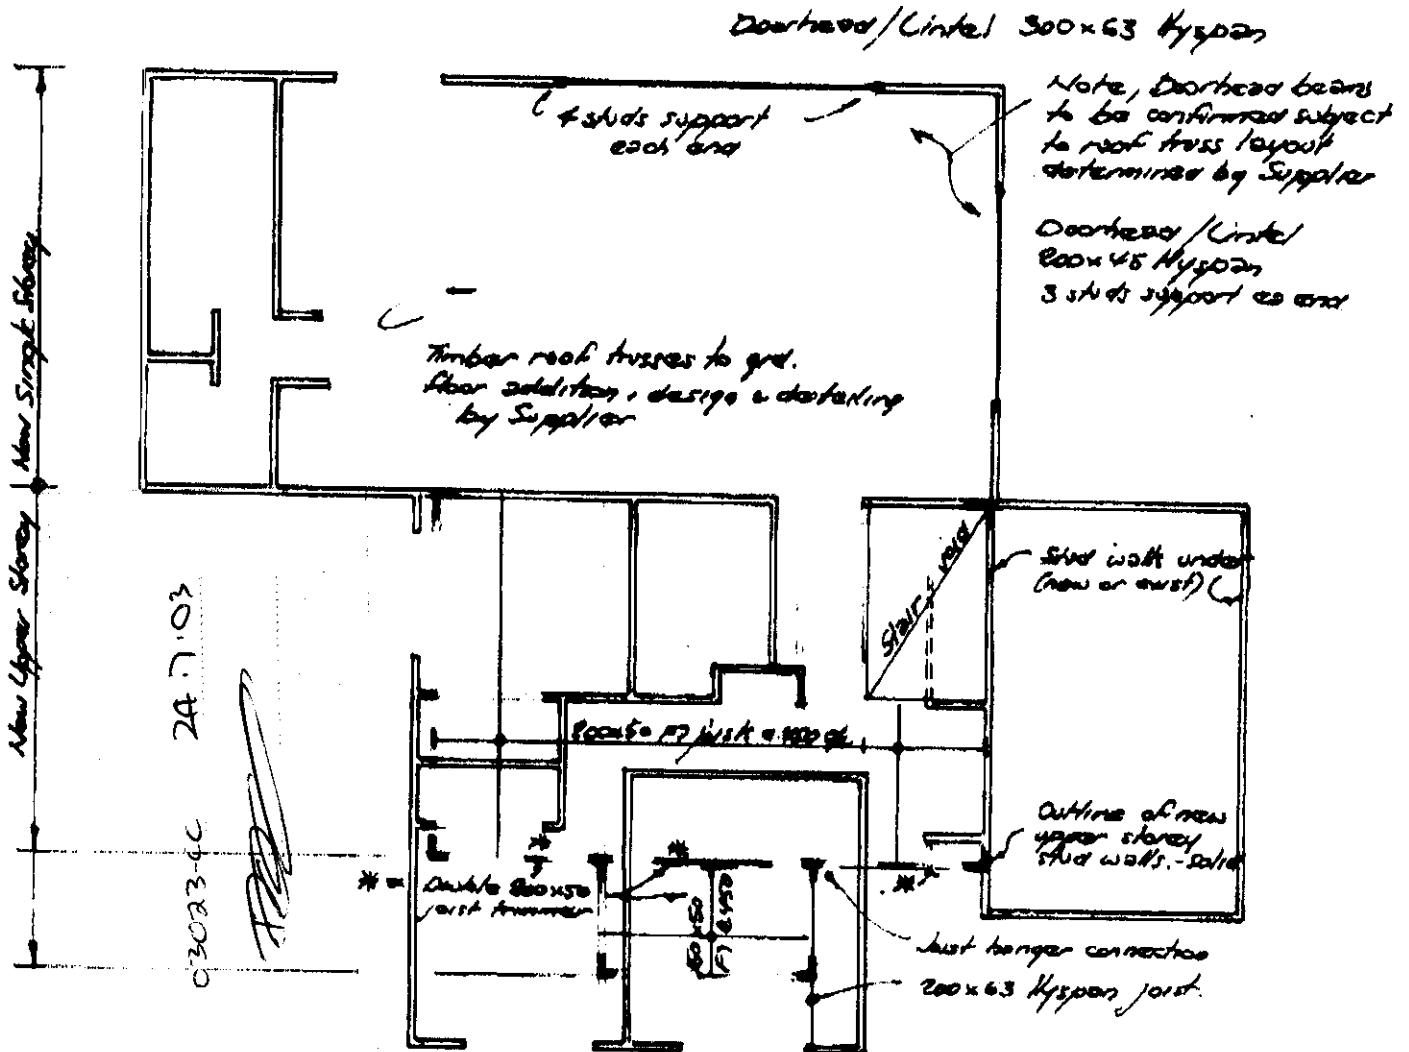 Doorhead/Lintel 300x63 Hyspan
Note, Doorhead beams
to be confirmed subject
to roof truss layout
determined by Supplier
4 studs support
each end
Doorhead/Lintel
200x45 Hyspan
3 studs support ea end
Timber roof trusses to grd.
floor addition, design & detailing
by Supplier
New Single Storey
New Upper Storey
Stair void
Stud walls under
(new or exist)
200x50 F7 joists @ 450
Outline of new
upper storey
stud walls.-solid
* = Double 200x50
joist trimmer
*
*
*
150x50
F7 @ 450
Joist hanger connection
200x63 Hyspan joist.
03023-CC